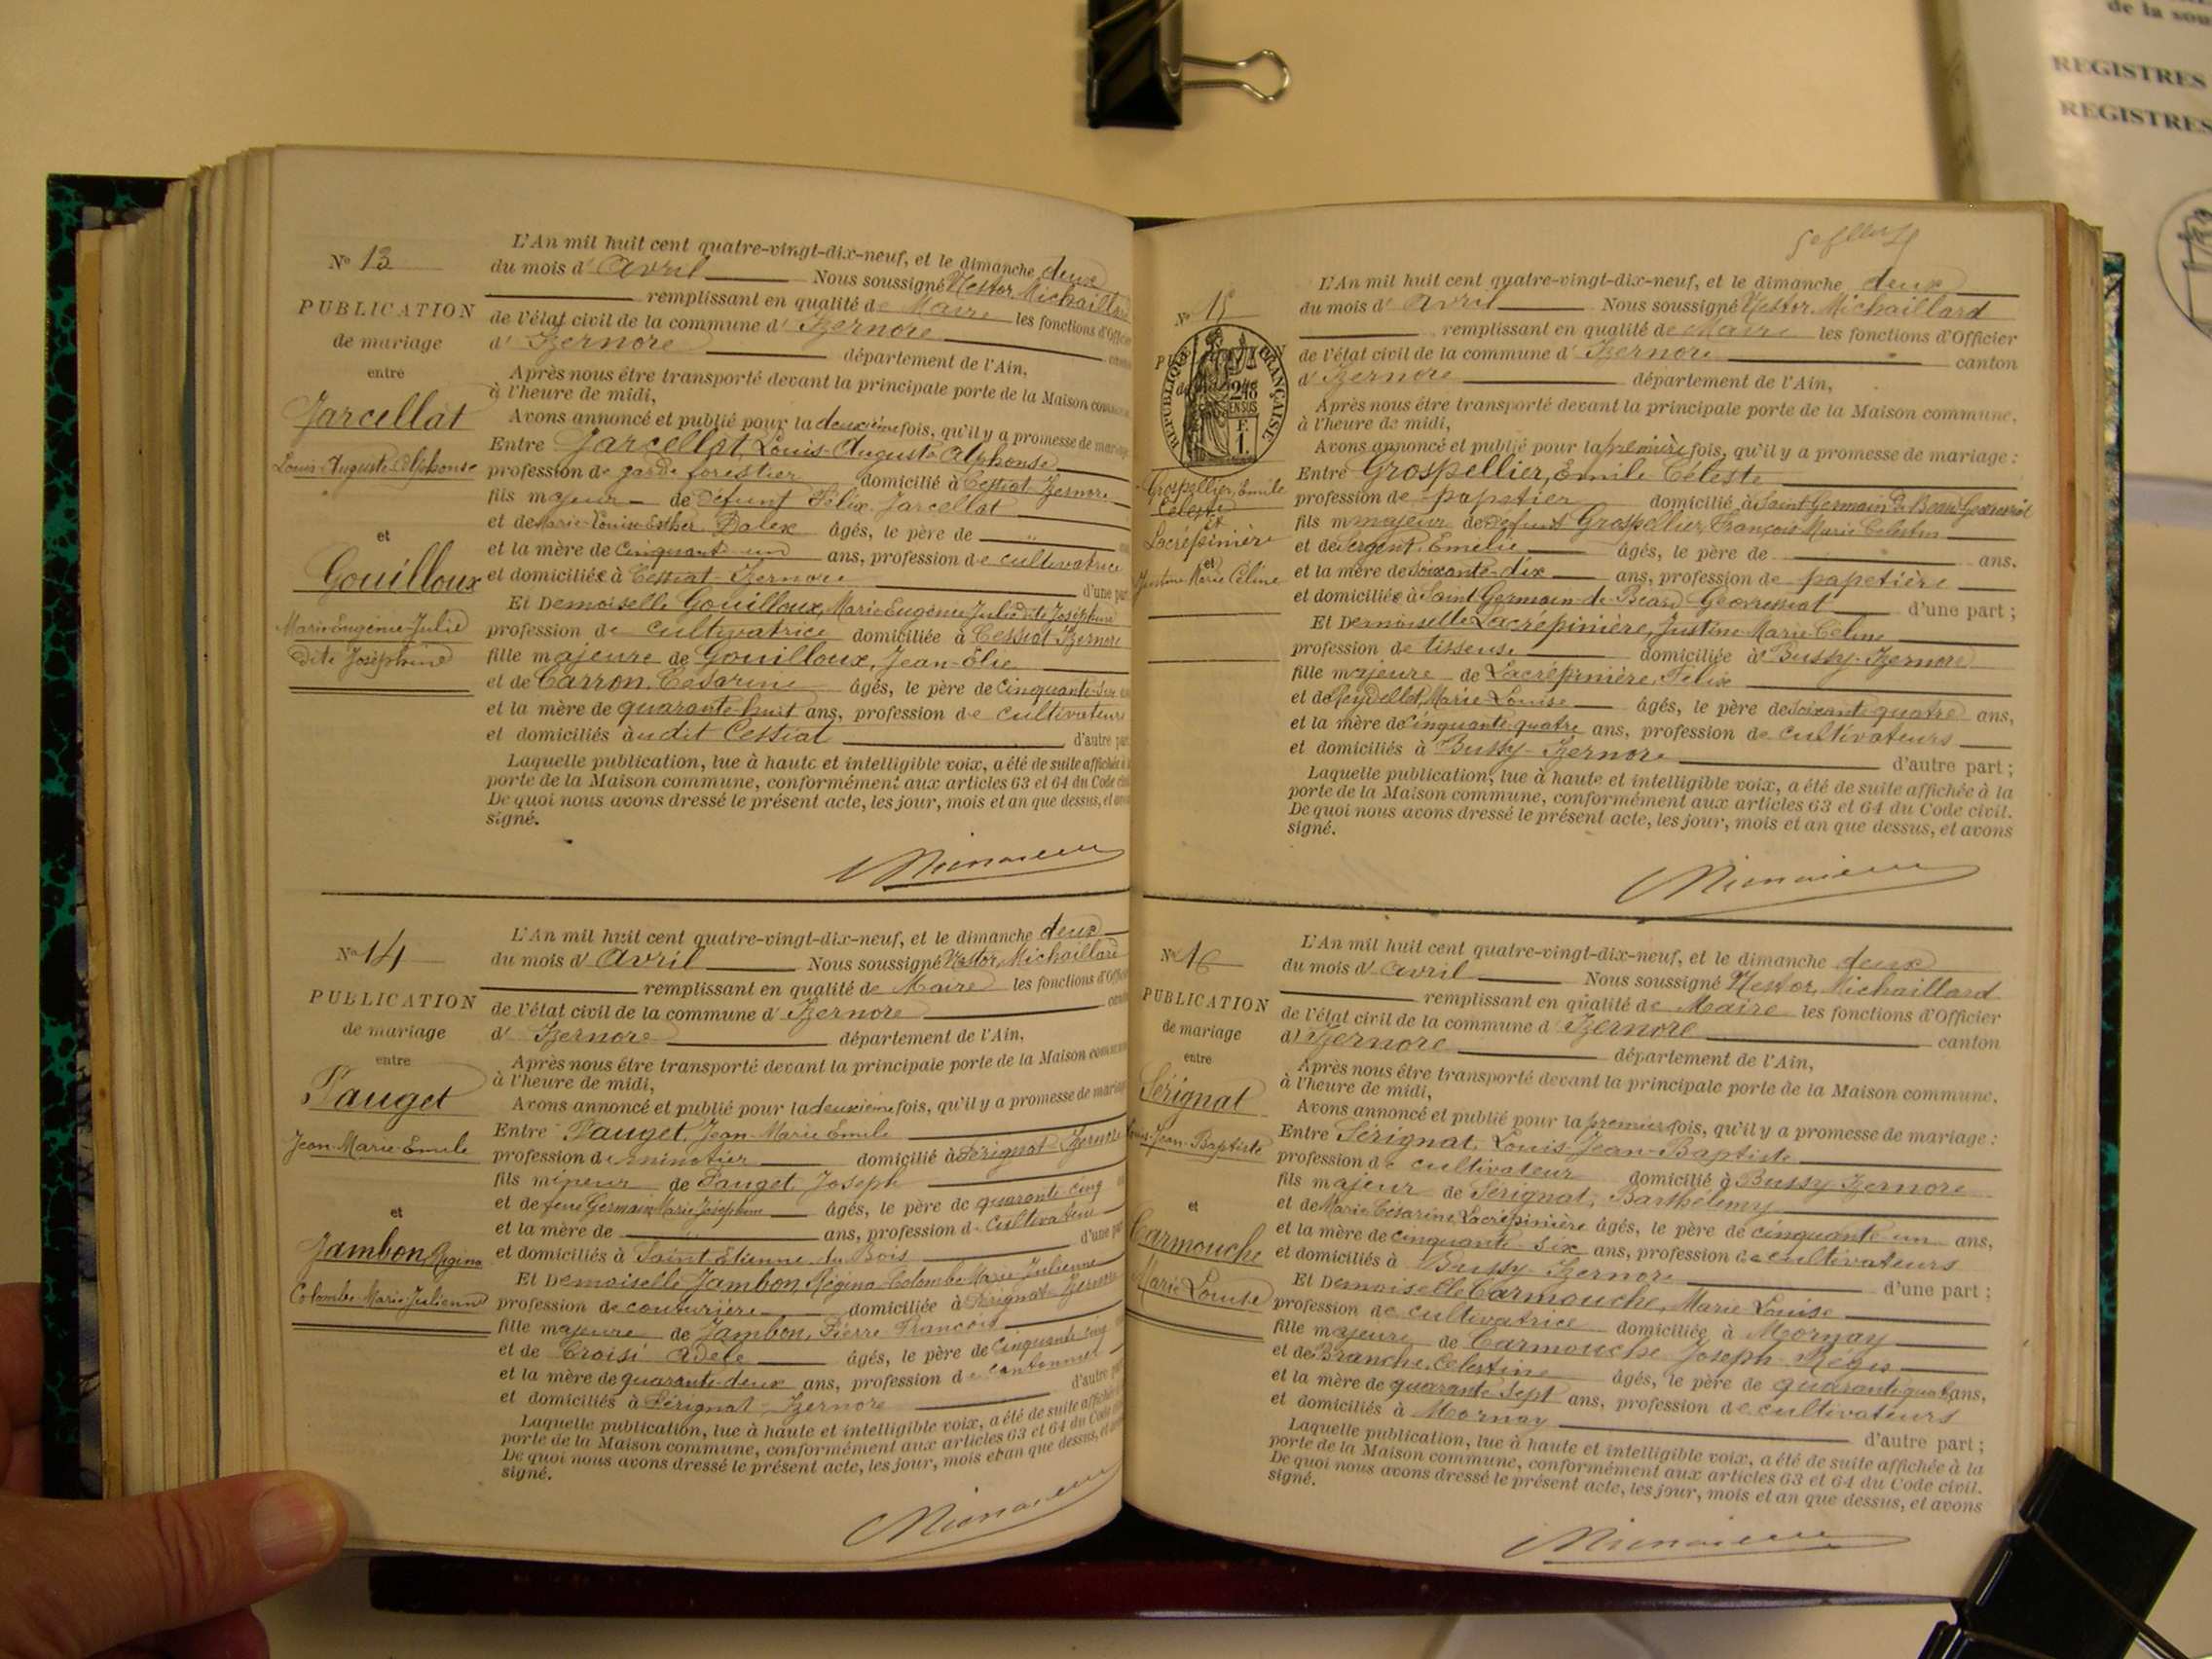 de la sou
REGISTRES
REGISTRES
N° 13
PUBLICATION
de mariage
entre
Jarcellat
Louis-Auguste-Alphonse
et
Gouilloux
Marie-Eugénie-Julie
dite Joséphine
L'An mil huit cent quatre-vingt-dix-neuf, et le dimanche deux
du mois d'Avril Nous soussigné Nestor Michaillard
remplissant en qualité de Maire les fonctions d'Offici
de l'état civil de la commune d'Izernore
d'Izernore département de l'Ain,
Après nous être transporté devant la principale porte de la Maison commun
à l'heure de midi,
Avons annoncé et publié pour la deuxième fois, qu'il y a promesse de mariage
Entre Jarcellat, Louis-Auguste Alphonse
profession de garde forestier domicilié à Cessiat-Izernore
fils majeur de défunt Félix Jarcellat
et de Marie-Louise-Esther Dalex âgés, le père de "
et la mère de cinquante un ans, profession de cultivatrice
et domiciliée à Cessiat-Izernore d'une part
Et Demoiselle Gouilloux, Marie Eugénie Julie dite Joséphine
profession de cultivatrice domiciliée à Cessiat-Izernore
fille majeure de Gouilloux, Jean-Élie
et de Carron, Césarine âgés, le père de Cinquante-six
et la mère de quarante-huit ans, profession de cultivateurs
et domiciliés à udit Cessiat d'autre part
Laquelle publication, lue à haute et intelligible voix, a été de suite affichée à la
porte de la Maison commune, conformément aux articles 63 et 64 du Code civil
De quoi nous avons dressé le présent acte, les jour, mois et an que dessus, et avons
signé.
N° 14
PUBLICATION
de mariage
entre
Pauget
Jean-Marie-Emile
et
Jambon, Régina
Colombe-Marie-Julienne
L'An mil huit cent quatre-vingt-dix-neuf, et le dimanche deux
du mois d'avril Nous soussigné Nestor, Michaillard
remplissant en qualité de Maire les fonctions d'Offici
de l'état civil de la commune d'Izernore cant
d'Izernore département de l'Ain,
Après nous être transporté devant la principale porte de la Maison commun
à l'heure de midi,
Avons annoncé et publié pour la deuxième fois, qu'il y a promesse de mariage
Entre Pauget, Jean-Marie Emile
profession de minotier domicilié à Pérignat-Izernore
fils mineur de Pauget, Joseph
et de feue Germain Marie Joséphine âgés, le père de quarante cinq
et la mère de ans, profession de cultivateur
et domiciliés à Saint Etienne du Bois d'une part
Et Demoiselle Jambon, Régina-Colombe Marie Julienne
profession de couturière domiciliée à Pérignat-Izernore
fille majeure de Jambon, Pierre-François
et de Croisi Adèle âgés, le père de Cinquante cinq
et la mère de quarante-deux ans, profession de cantonnier
et domiciliés à Pérignat-Izernore d'autre part
Laquelle publication, lue à haute et intelligible voix, a été de suite affichée
porte de la Maison commune, conformément aux articles 63 et 64 du Code
De quoi nous avons dressé le présent acte, les jour, mois et an que dessus, et
signé.
N° 15
RÉPUBLIQUE FRANÇAISE
Grospellier, Emile
Céleste
et
Lacrépinière
Justine Marie Céline
L'An mil huit cent quatre-vingt-dix-neuf, et le dimanche deux
du mois d'avril Nous soussigné Nestor, Michaillard
remplissant en qualité de Maire les fonctions d'Officier
de l'état civil de la commune d'Izernore canton
d'Izernore département de l'Ain,
Après nous être transporté devant la principale porte de la Maison commune,
à l'heure de midi,
Avons annoncé et publié pour la première fois, qu'il y a promesse de mariage :
Entre Grospellier, Emile Céleste
profession de papetier domicilié à Saint Germain de Beard Geovressiat
fils majeur de défunt Grospellier, François Marie Celestin
et de Sergent, Emélie âgés, le père de ans,
et la mère de soixante-dix ans, profession de papetière
et domiciliée à Saint Germain-de Beard-Geovressiat d'une part ;
Et Demoiselle Lacrépinière, Justine-Marie Céline
profession de tisseuse domiciliée à Bussy-Izernore
fille majeure de Lacrépinière, Félix
et de Reydellet, Marie-Louise âgés, le père de soixante quatre ans,
et la mère de cinquante quatre ans, profession de cultivateurs
et domiciliés à Bussy-Izernore d'autre part ;
Laquelle publication, lue à haute et intelligible voix, a été de suite affichée à la
porte de la Maison commune, conformément aux articles 63 et 64 du Code civil.
De quoi nous avons dressé le présent acte, les jour, mois et an que dessus, et avons
signé.
N° 16
PUBLICATION
de mariage
entre
Sérignat
Louis-Jean-Baptiste
et
Carmouche
Marie-Louise
L'An mil huit cent quatre-vingt-dix-neuf, et le dimanche deux
du mois d'avril Nous soussigné Nestor, Michaillard
remplissant en qualité de Maire les fonctions d'Officier
de l'état civil de la commune d'Izernore canton
d'Izernore département de l'Ain,
Après nous être transporté devant la principale porte de la Maison commune,
à l'heure de midi,
Avons annoncé et publié pour la première fois, qu'il y a promesse de mariage :
Entre Sérignat, Louis-Jean-Baptiste
profession de cultivateur domicilié à Bussy-Izernore
fils majeur de Sérignat, Barthélemy
et de Marie Césarine Lacrépinière âgés, le père de cinquante-un ans,
et la mère de cinquante-six ans, profession de cultivateurs
et domiciliés à Bussy-Izernore d'une part ;
Et Demoiselle Carmouche, Marie-Louise
profession de cultivatrice domiciliée à Mornay
fille majeure de Carmouche Joseph-Régis
et de Branche, Celestine âgés, le père de quarante quatre ans,
et la mère de quarante sept ans, profession de cultivateurs
et domiciliés à Mornay d'autre part ;
Laquelle publication, lue à haute et intelligible voix, a été de suite affichée à la
porte de la Maison commune, conformément aux articles 63 et 64 du Code civil.
De quoi nous avons dressé le présent acte, les jour, mois et an que dessus, et avons
signé.